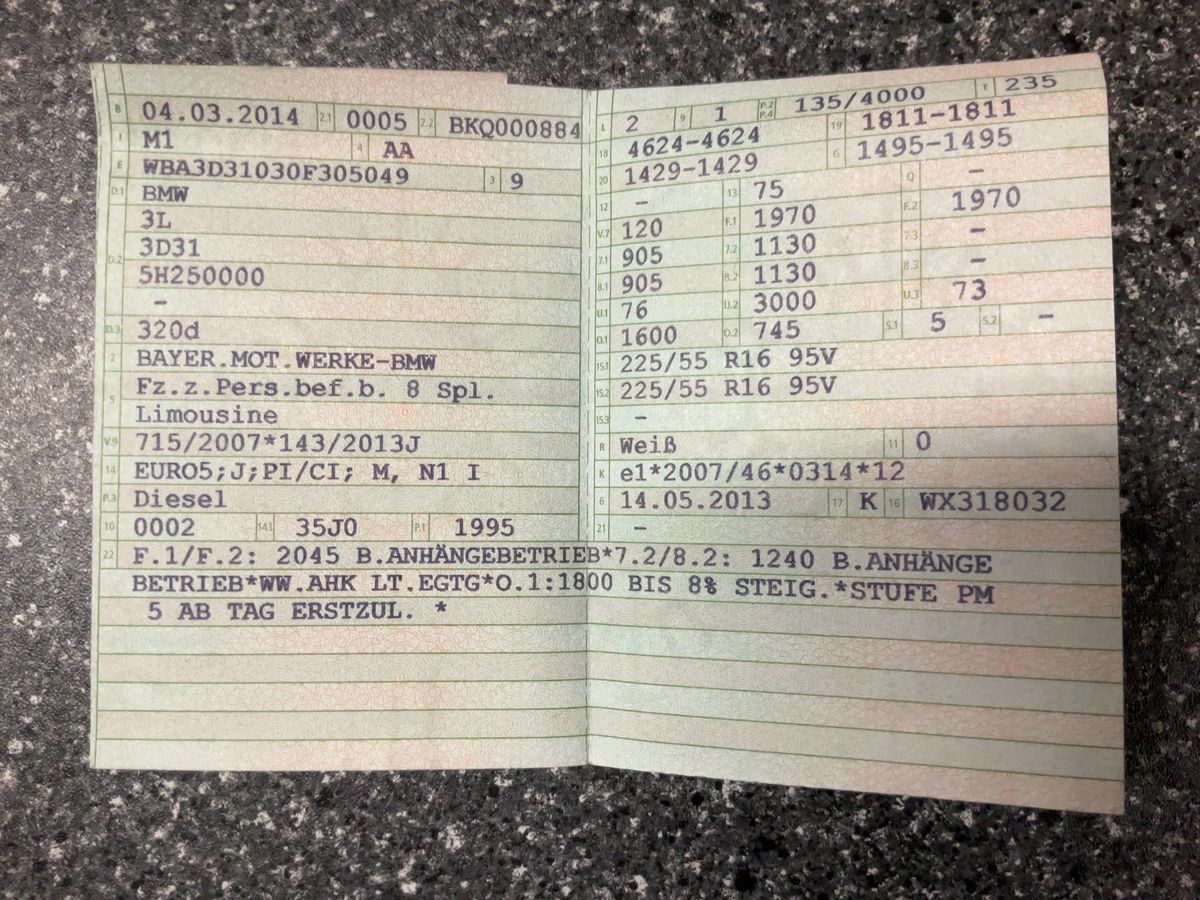 B 04.03.2014 2.1 0005 2.2 BKQ000884
J M1 4 AA
E WBA3D31030F305049 3 9
D.1 BMW
3L
D.2 3D31
5H250000
–
D.3 320d
2 BAYER.MOT.WERKE-BMW
5 Fz.z.Pers.bef.b. 8 Spl.
Limousine
V.9 715/2007*143/2013J
14 EURO5;J;PI/CI; M, N1 I
P.3 Diesel
10 0002 14.1 35J0 P.1 1995
L 2 9 1 P.2 P.4 135/4000 T 235
18 4624-4624 19 1811-1811
20 1429-1429 G 1495-1495
12 – 13 75 Q –
V.7 120 F.1 1970 F.2 1970
7.1 905 7.2 1130 7.3 –
8.1 905 8.2 1130 8.3 –
U.1 76 U.2 3000 U.3 73
O.1 1600 O.2 745 S.1 5 S.2 –
15.1 225/55 R16 95V
15.2 225/55 R16 95V
15.3 –
R Weiß 11 0
K e1*2007/46*0314*12
6 14.05.2013 17 K 16 WX318032
21 –
22 F.1/F.2: 2045 B.ANHÄNGEBETRIEB*7.2/8.2: 1240 B.ANHÄNGE
BETRIEB*WW.AHK LT.EGTG*O.1:1800 BIS 8% STEIG.*STUFE PM
5 AB TAG ERSTZUL. *